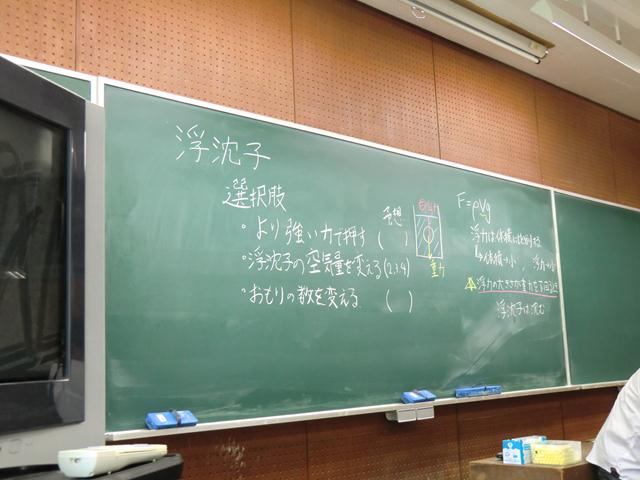 浮沈子
選択肢
予想
・より強い力で押す ( )
・浮沈子の空気量を変える (2.3.4)
・おもりの数を変える ( )
重力
F=ρVg
浮力は体積に比例する
↳体積→小, 浮力→小
浮力の大きさが重力を下回るとき
浮沈子は沈む